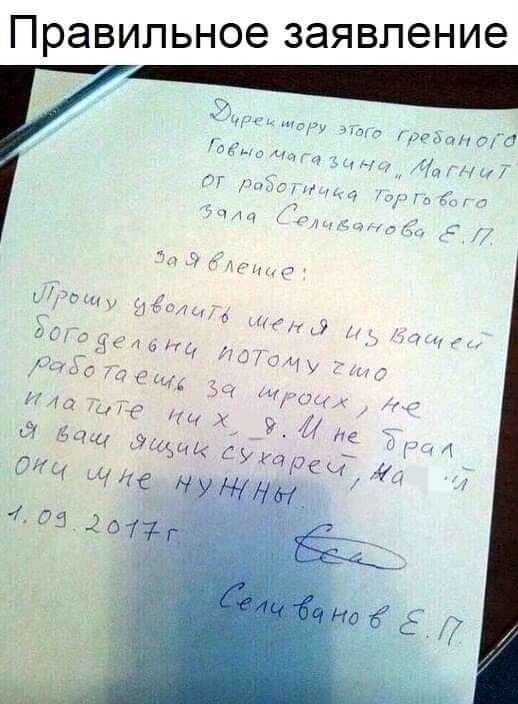 Правильное заявление
Директору этого гребаного
Говномагазина „Магнит
от работника торгового
зала Селиванова Е.П.
заявление:
Прошу уволить меня из вашей
богодельни потому что
работаешь за троих, не
платите ни х, я. И не брал
я ваш ящик сухарей, на й
они мне нужны
1.09.2017г.
Селиванов Е.П.